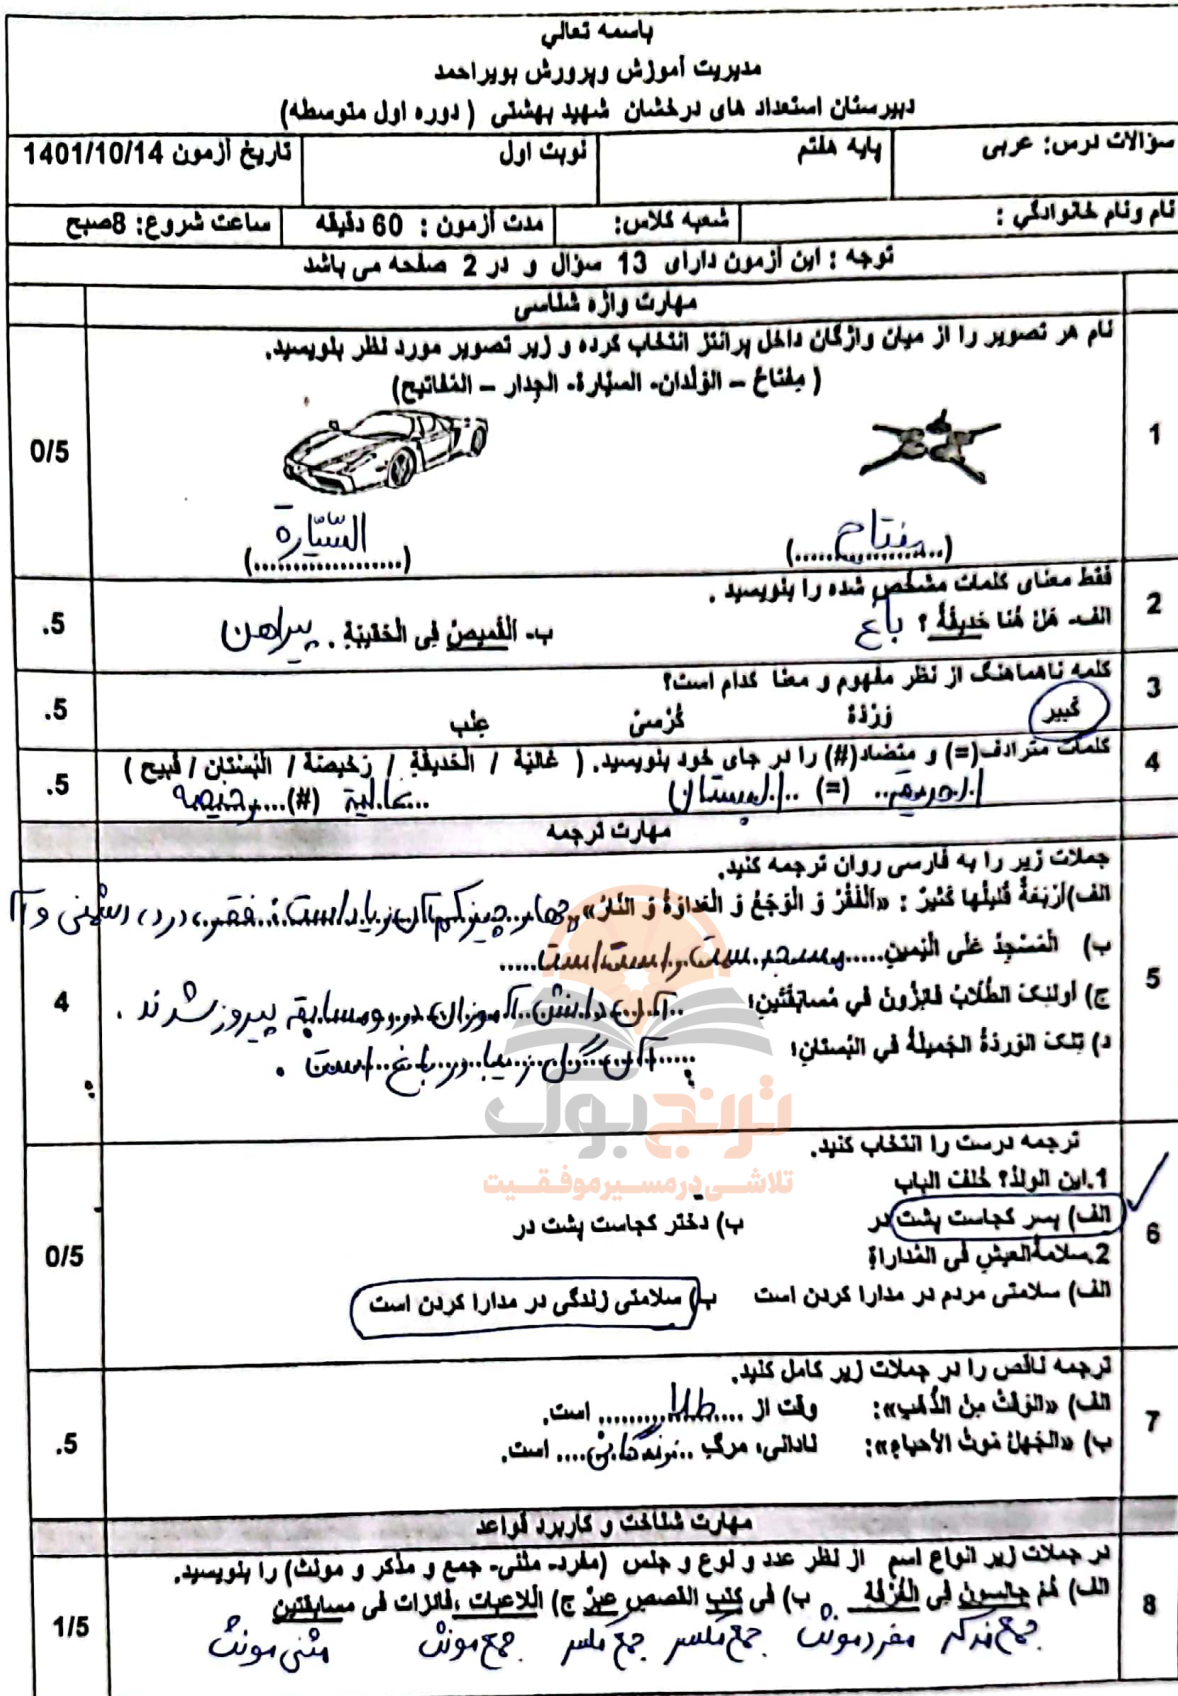 باسمه تعالي
مدیریت آموزش وپرورش بویراحمد
دبیرستان استعداد های درخشان شهید بهشتی ( دوره اول متوسطه)
سؤالات درس: عربی پایه هفتم نوبت اول تاریخ آزمون 1401/10/14
نام ونام خانوادگي : شعبه کلاس: مدت آزمون : 60 دقیقه ساعت شروع: 8صبح
توجه : این آزمون دارای 13 سؤال و در 2 صفحه می باشد
مهارت واژه شناسی
نام هر تصویر را از میان واژگان داخل پرانتز انتخاب کرده و زیر تصویر مورد نظر بنویسید.
( مِفتاحُ – الوَلَدان- السیّارة- الجِدار – المَفاتیح)
1 0/5
(مفتاح) (السّیّارة)
2 فقط معنای کلمات مشخص شده را بنویسید . .5
الف- هَلْ هُنا حَدیقَةُ ؟ باغ ب- اَلْقَمیصُ فِی الْحَقیبَةِ . پیراهن
3 کلمه ناهماهنگ از نظر مفهوم و معنا کدام است؟ .5
کَبیر وَرْدَةُ کُرْسیّ عِنَب
4 کلمات مترادف(=) و متضاد(#) را در جای خود بنویسید. ( غالیَة / الحَدیقَةِ / رَخیصَة / البُسْتان / قَبیح ) .5
الحدیقة (=) البستان غالیة (#) رخیصه
مهارت ترجمه
5 جملات زیر را به فارسی روان ترجمه کنید. 4
الف)أَرْبَعَةُ قَلیلُها کَثیرُ : «اَلْفَقْرُ وَ الْوَجَعُ وَ الْعَداوَةُ وَ النّارُ» چهار چیز کم آن زیاد است: فقر، درد، دشمنی و آ
ب) الْمَسْجِدُ عَلَی الْیَمینِ..... مسجد سمت راست است.....
ج) اولئِکَ الطُّلابُ فائِزُونَ في مُسابَقَتَینِ؛ ..آن دانش آموزان در دو مسابقه پیروز شدند .
د) تِلکَ الوَردَةُ الجَمیلَةُ في البُستانِ؛ .....آن گل زیبا در باغ است .
ترنج بوک
تلاشی در مسیر موفقیت
6 ترجمه درست را انتخاب کنید. 0/5
1.این الولدُ؟ خَلفَ الباب
الف) پسر کجاست پشت در ب) دختر کجاست پشت در
2.سلامةُ العیشِ فی المُداراةِ
الف) سلامتی مردم در مدارا کردن است ب) سلامتی زندگی در مدارا کردن است
7 ترجمه ناقص را در جملات زیر کامل کنید. .5
الف) «الوَقتُ مِنَ الذَّهَبِ»: وقت از طلا است.
ب) «الجَهلُ مَوتُ الأحیاءِ»: نادانی، مرگ ..زندگان.... است.
مهارت شناخت و کاربرد قواعد
8 در جملات زیر انواع اسم از نظر عدد و نوع و جنس (مفرد- مثنی- جمع و مذکر و مونث) را بنویسید. 1/5
الف) هُم جالِسونَ فِي الْغُرْفَةِ ب) فی کُتُبِ القصصِ عِبَرٌ ج) اَللاعِباتِ ،فائزات فی مسابقتین
جمع مذکر مفرد مونث جمع مکسر جمع مکسر جمع مونث مثنی مونث